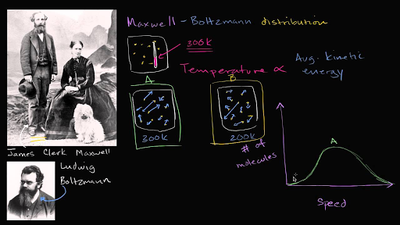 Maxwell - Boltzmann distribution
300K
Temperature ∝ Avg. kinetic
energy
A
B
300K
200K
James Clerk Maxwell
Ludwig
Boltzmann
# of
molecules
A
Speed